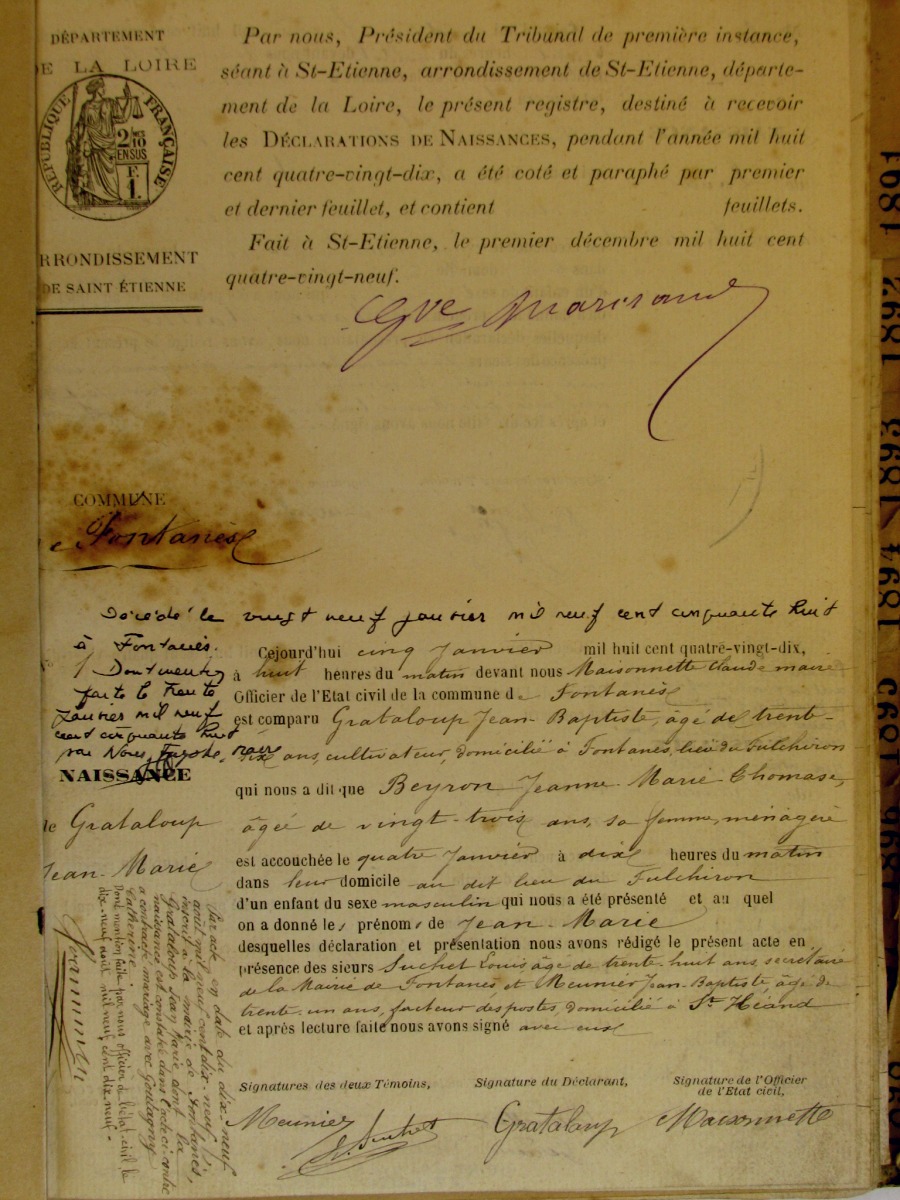 DÉPARTEMENT
DE LA LOIRE
RÉPUBLIQUE FRANÇAISE
2/10
EN SUS
F.
1.
ARRONDISSEMENT
DE SAINT ÉTIENNE
Par nous, Président du Tribunal de première instance,
séant à St-Etienne, arrondissement de St-Etienne, départe-
ment de la Loire, le présent registre, destiné à recevoir
les DÉCLARATIONS DE NAISSANCES, pendant l'année mil huit
cent quatre-vingt-dix, a été coté et paraphé par premier
et dernier feuillet, et contient feuillets.
Fait à St-Etienne, le premier décembre mil huit cent
quatre-vingt-neuf.
COMMUNE
de Fontanès
Décédé le vingt neuf janvier mil neuf cent cinquante huit
à Fontanès.
Dont mention
faite le trente
janvier mil neuf
cent cinquante huit
par Nous, maire
NAISSANCE
de Grataloup
Jean-Marie
Par acte en date du dix-neuf
août mil neuf cent dix-neuf
inscrit à la mairie de Fontanès,
Grataloup Jean Marie dont la
naissance est constatée dans l'acte ci-contre
a contracté mariage avec Goutagny
Catherine.
Dont mention faite par nous officier de l'état-civil le
dix-neuf août mil neuf cent dix-neuf.
Cejourd'hui cinq Janvier mil huit cent quatre-vingt-dix,
à huit heures du matin devant nous Maisonnette Claude maire
Officier de l'Etat civil de la commune de Fontanès
est comparu Grataloup Jean-Baptiste, âgé de trente-
dix ans, cultivateur, domicilié à Fontanès, lieu du Fulchiron
qui nous a dit que Beyron Jeanne-Marie Thomase,
âgée de vingt-trois ans, sa femme, ménagère
est accouchée le quatre Janvier à dix heures du matin
dans leur domicile au dit lieu du Fulchiron
d'un enfant du sexe masculin qui nous a été présenté et au quel
on a donné les prénoms de Jean-Marie
desquelles déclaration et présentation nous avons rédigé le présent acte en
présence des sieurs Suchet Louis âgé de trente-huit ans, secrétaire
de la Mairie de Fontanès et Meunier Jean-Baptiste, âgé de
trente-un ans, facteur des postes, domicilié à St Héand
et après lecture faite nous avons signé avec eux
Signatures des deux Témoins,
Signature du Déclarant,
Signature de l'Officier
de l'Etat civil,
Meunier
L. Suchet
Grataloup
Maisonnette
1891
1892
1893
1894
1895
1896